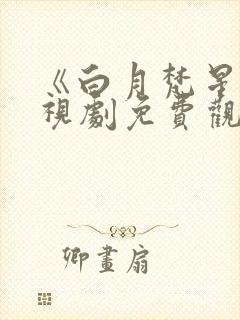 《白月梵星
視劇免費觀
卿畫扇